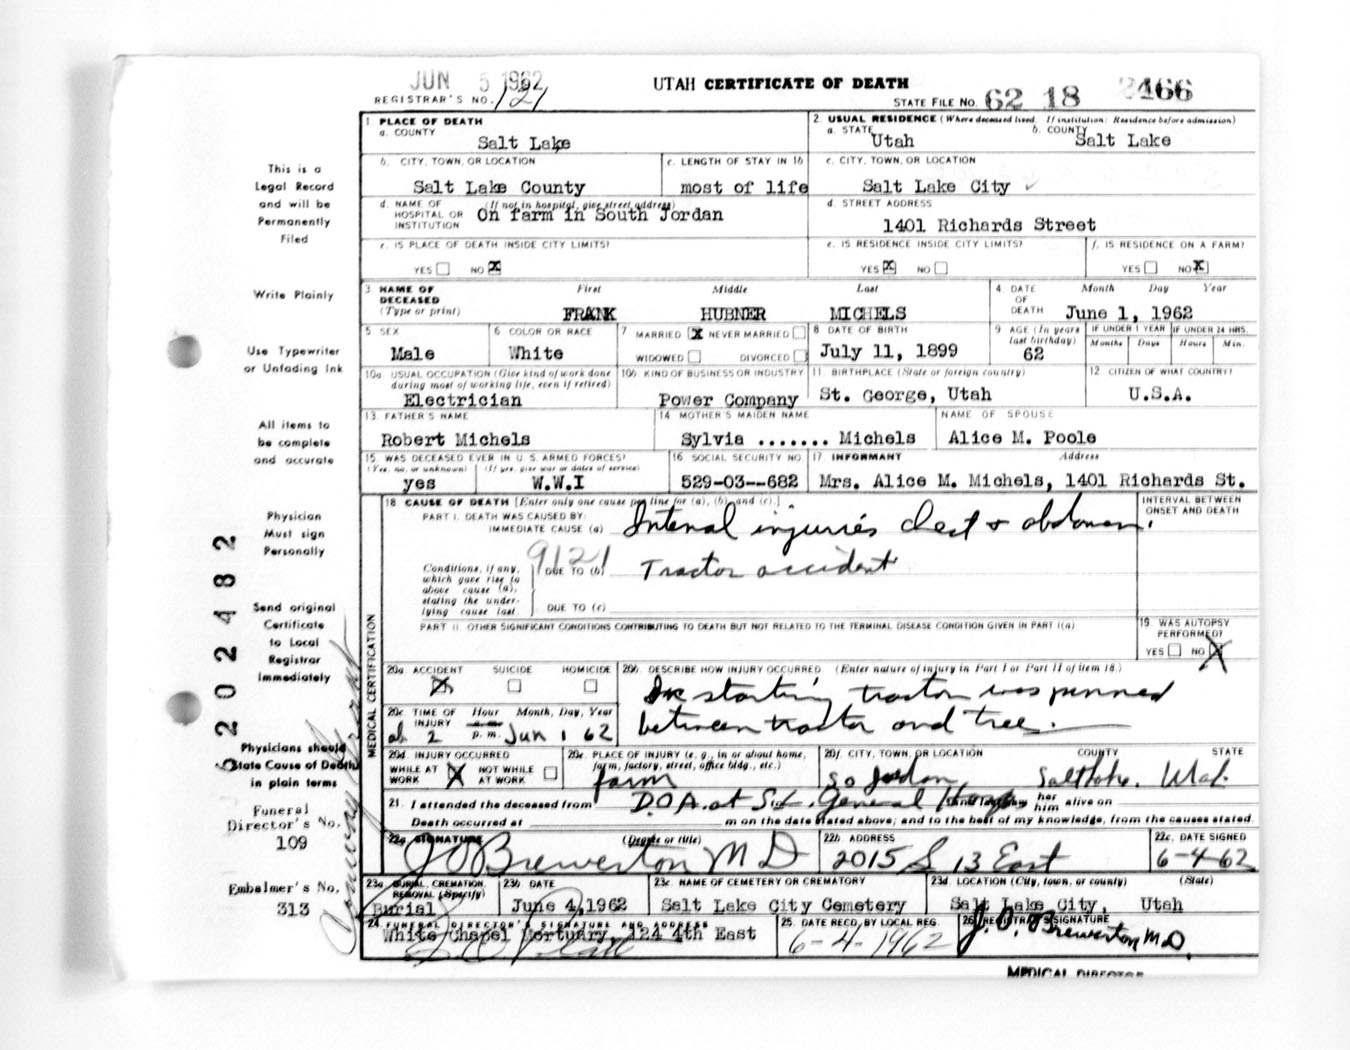 JUN 5 1962
UTAH CERTIFICATE OF DEATH
REGISTRAR'S NO. 121
STATE FILE NO. 62 18 2466
1. PLACE OF DEATH
a. COUNTY
Salt Lake
2. USUAL RESIDENCE (Where deceased lived. If institution: Residence before admission)
a. STATE Utah b. COUNTY Salt Lake
b. CITY, TOWN, OR LOCATION
Salt Lake County
c. LENGTH OF STAY IN 1b
most of life
c. CITY, TOWN, OR LOCATION
Salt Lake City
d. NAME OF HOSPITAL OR INSTITUTION (If not in hospital, give street address)
On farm in South Jordan
d. STREET ADDRESS
1401 Richards Street
e. IS PLACE OF DEATH INSIDE CITY LIMITS?
YES NO X
e. IS RESIDENCE INSIDE CITY LIMITS?
YES X NO
f. IS RESIDENCE ON A FARM?
YES NO X
3. NAME OF DECEASED (Type or print)
First Middle Last
FRANK HUBNER MICHELS
4. DATE OF DEATH Month Day Year
June 1, 1962
5. SEX
Male
6. COLOR OR RACE
White
7. MARRIED X NEVER MARRIED
WIDOWED DIVORCED
8. DATE OF BIRTH
July 11, 1899
9. AGE (In years last birthday)
62
IF UNDER 1 YEAR IF UNDER 24 HRS.
Months Days Hours Min.
10a. USUAL OCCUPATION (Give kind of work done during most of working life, even if retired)
Electrician
10b. KIND OF BUSINESS OR INDUSTRY
Power Company
11. BIRTHPLACE (State or foreign country)
St. George, Utah
12. CITIZEN OF WHAT COUNTRY?
U.S.A.
13. FATHER'S NAME
Robert Michels
14. MOTHER'S MAIDEN NAME
Sylvia ....... Michels
NAME OF SPOUSE
Alice M. Poole
15. WAS DECEASED EVER IN U. S. ARMED FORCES?
(Yes, no, or unknown) (If yes, give war or dates of service)
yes W.W.I
16. SOCIAL SECURITY NO.
529-03--682
17. INFORMANT Address
Mrs. Alice M. Michels, 1401 Richards St.
18. CAUSE OF DEATH [Enter only one cause per line for (a), (b), and (c).]
INTERVAL BETWEEN ONSET AND DEATH
PART I. DEATH WAS CAUSED BY:
IMMEDIATE CAUSE (a) Internal injuries chest + abdomen.
9121
Conditions, if any, which gave rise to above cause (a), stating the underlying cause last.
DUE TO (b) Tractor accident
DUE TO (c)
PART II. OTHER SIGNIFICANT CONDITIONS CONTRIBUTING TO DEATH BUT NOT RELATED TO THE TERMINAL DISEASE CONDITION GIVEN IN PART I(a)
19. WAS AUTOPSY PERFORMED?
YES NO X
MEDICAL CERTIFICATION
20a. ACCIDENT SUICIDE HOMICIDE
X
20b. DESCRIBE HOW INJURY OCCURRED. (Enter nature of injury in Part I or Part II of item 18.)
In starting tractor was pinned
between tractor and tree.
20c. TIME OF INJURY Hour Month, Day, Year
ab 2 a.m. p.m. Jun 1 62
20d. INJURY OCCURRED
WHILE AT WORK X NOT WHILE AT WORK
20e. PLACE OF INJURY (e. g., in or about home, farm, factory, street, office bldg., etc.)
farm
20f. CITY, TOWN, OR LOCATION COUNTY STATE
So Jordan Salt Lake. Utah.
21. I attended the deceased from D.O.A. at S.L. General Hosp her him alive on
Death occurred at m on the date stated above; and to the best of my knowledge, from the causes stated.
22a. SIGNATURE (Degree or title)
J O Brewerton M D
22b. ADDRESS
2015 S 13 East
22c. DATE SIGNED
6-4-62
23a. BURIAL, CREMATION, REMOVAL (Specify)
Burial
23b. DATE
June 4, 1962
23c. NAME OF CEMETERY OR CREMATORY
Salt Lake City Cemetery
23d. LOCATION (City, town, or county) (State)
Salt Lake City, Utah
24. FUNERAL DIRECTOR'S SIGNATURE AND ADDRESS
White Chapel Mortuary, 124 4th East
25. DATE RECD. BY LOCAL REG.
6-4-1962
26. REGISTRAR'S SIGNATURE
J. O. Brewerton M.D.
MEDICAL DIRECTOR
This is a
Legal Record
and will be
Permanently
Filed
Write Plainly
Use Typewriter
or Unfading Ink
All items to
be complete
and accurate
Physician
Must sign
Personally
Send original
Certificate
to Local
Registrar
Immediately
Physicians should
State Cause of Death
in plain terms
Funeral
Director's No.
109
Embalmer's No.
313
6202482